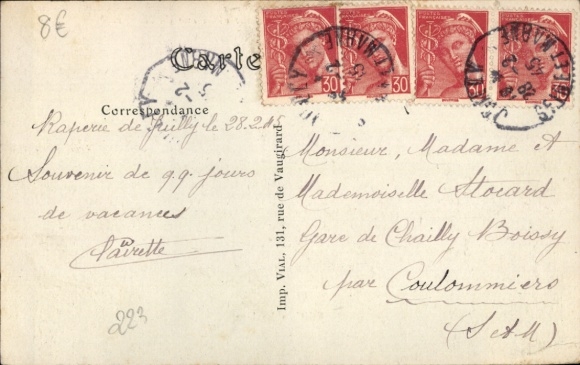 8€
Carte
Correspondance
Raperie de Juilly le 28.2.45
Souvenir de qq. jours
de vacances
223
Imp. VIAL, 131, rue de Vaugirard
30
30
30
Monsieur, Madame et
Mademoiselle Stocard
Gare de Chailly Boissy
par Coulommiers
(S et M)